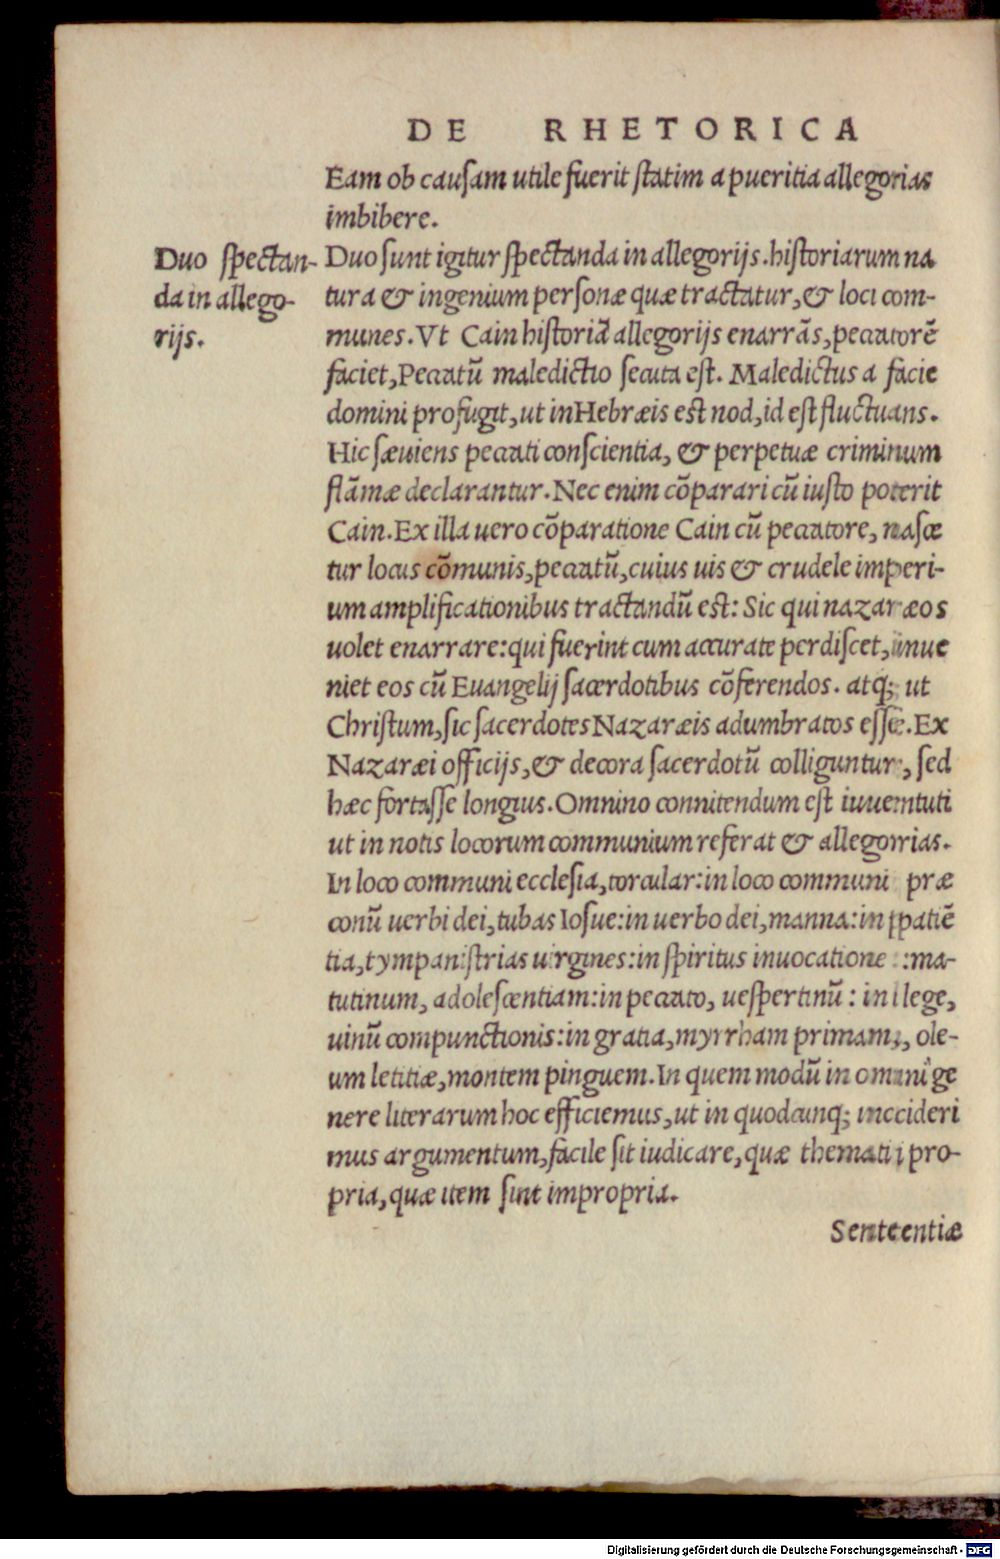 DE RHETORICA
Eam ob causam utile fuerit statim a pueritia allegorias
imbibere.
Duo spectan-
da in allego-
rijs.
Duo sunt igitur spectanda in allegorijs. historiarum na
tura & ingenium personæ quæ tractatur, & loci com-
munes. Vt Cain historiã allegorijs enarrãs, peccatorẽ
faciet, Peccatũ maledictio secuta est. Maledictus a facie
domini profugit, ut in Hebræis est nod, id est fluctuans.
Hic sæuiens peccati conscientia, & perpetuæ criminum
flãmæ declarantur. Nec enim cõparari cũ iusto poterit
Cain. Ex illa uero cõparatione Cain cũ peccatore, nasce
tur locus cõmunis, peccatũ, cuius uis & crudele imperi-
um amplificationibus tractandũ est: Sic qui nazaræos
uolet enarrare: qui fuerint cum accurate perdiscet, inue
niet eos cũ Euangelij sacerdotibus cõferendos. atq; ut
Christum, sic sacerdotes Nazaræis adumbratos esse. Ex
Nazaræi officijs, & decora sacerdotũ colliguntur, sed
hæc fortasse longius. Omnino connitendum est iuuentuti
ut in notis locorum communium referat & allegorias.
In loco communi ecclesia, torcular: in loco communi præ
conũ uerbi dei, tubas Iosue: in uerbo dei, manna: in patiẽ
tia, tympanistrias uirgines: in spiritus inuocatione: ma-
tutinum, adolescentiam: in peccato, uespertinũ: in lege,
uinũ compunctionis: in gratia, myrrham primam, ole-
um letitiæ, montem pinguem. In quem modũ in omni ge
nere literarum hoc efficiemus, ut in quodcunq; inccideri
mus argumentum, facile sit iudicare, quæ themati pro-
pria, quæ item sint impropria.
Senteentiæ
Digitalisierung gefördert durch die Deutsche Forschungsgemeinschaft - DFG